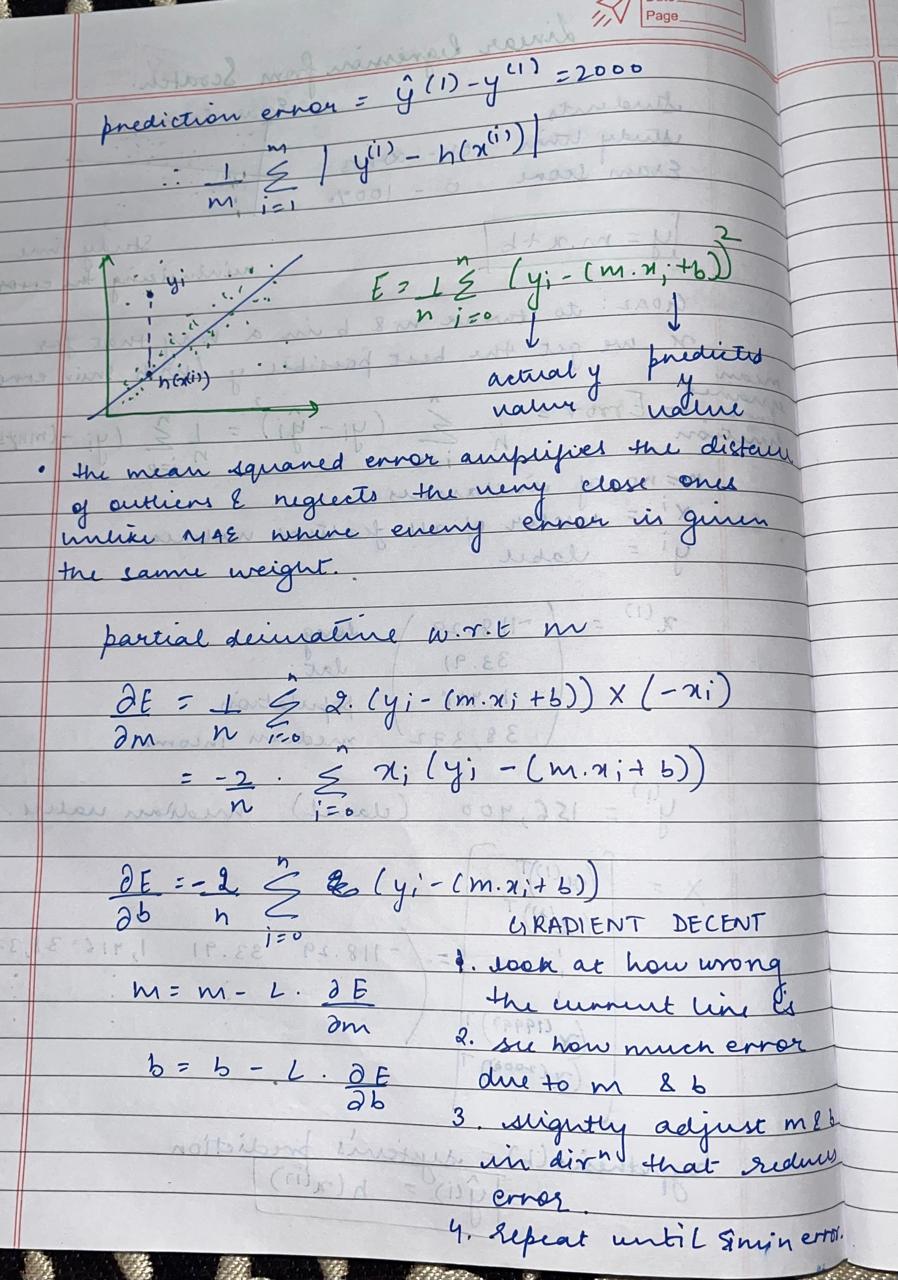 Page
prediction error = ŷ(1) - y(1) = 2000
∴ 1/m Σ_{i=1}^{m} | y(i) - h(x(i)) |
yi
h(x(i))
E = 1/n Σ_{i=0}^{n} (yi - (m.xi + b))²
actual y value
predicted y value
• the mean squared error amplifies the distance
of outliers & neglects the very close ones
unlike MAE where every error is given
the same weight.
partial derivative w.r.t m
∂E/∂m = 1/n Σ_{i=0}^{n} 2. (yi - (m.xi + b)) × (-xi)
= -2/n . Σ_{i=0}^{n} xi (yi - (m.xi + b))
∂E/∂b = -2/n Σ_{i=0}^{n} (yi - (m.xi + b))
GRADIENT DECENT
1. look at how wrong
the current line is
m = m - L. ∂E/∂m
2. see how much error
due to m & b
b = b - L. ∂E/∂b
3. slightly adjust m & b
in dirⁿ that reduces
error.
4. repeat until min error.